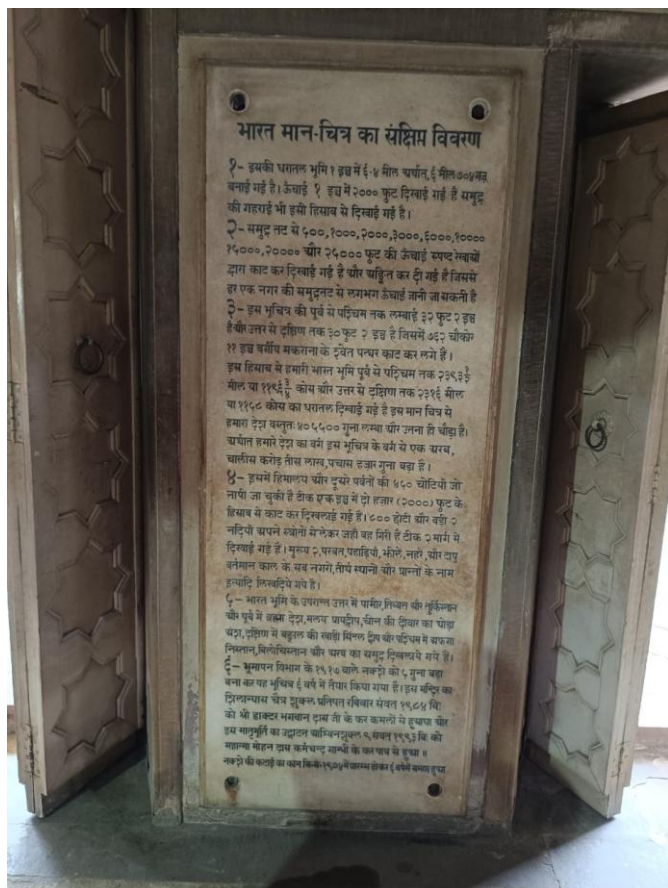 भारत मान-चित्र का संक्षिप्त विवरण
१- इसकी धरातल भूमि १ इञ्च में ६·४ मील अर्थात्, ६ मील ७०४ गज़
बनाई गई है। ऊँचाई १ इञ्च में २००० फुट दिखाई गई है समुद्र
की गहराई भी इसी हिसाब से दिखाई गई है।
२- समुद्र तट से ५००,१०००,२०००,३०००,६०००,१००००
१५०००,२०००० और २५००० फुट की ऊँचाई स्पष्ट रेखाओं
द्वारा काट कर दिखाई गई है और अङ्कित कर दी गई है जिससे
हर एक नगर की समुद्रतट से लगभग ऊँचाई जानी जा सकती है
३- इस भूचित्र की पूर्व से पश्चिम तक लम्बाई ३२ फुट २ इञ्च
है और उत्तर से दक्षिण तक ३० फुट २ इञ्च है जिसमें ७६२ चौकोर
११ इञ्च वर्गीय मकराना के श्वेत पत्थर काट कर लगे हैं।
इस हिसाब से हमारी भारत भूमि पूर्व से पश्चिम तक २३९३
मील या ११९६ कोस और उत्तर से दक्षिण तक २३१६ मील
या ११५८ कोस का धरातल दिखाई गई है इस मान चित्र से
हमारा देश वस्तुतः ४०५५०० गुना लम्बा और उतना ही चौड़ा है।
अर्थात हमारे देश का वर्ग इस भूचित्र के वर्ग से एक अरब,
चालीस करोड़ तीस लाख, पचास हजार गुना बड़ा है।
४- इसमें हिमालय और दूसरे पर्वतों की ४५० चोटियाँ जो
नापी जा चुकी हैं ठीक एक इञ्च में दो हजार (२०००) फुट के
हिसाब से काट कर दिखलाई गई हैं। ८०० छोटी और बड़ी २
नदियाँ अपने स्त्रोतों से लेकर जहाँ वह गिरी हैं ठीक २ मार्ग से
दिखाई गई हैं। मुख्य २, परबत, पहाड़ियाँ, झीलें, नहरें, और टापू
वर्तमान काल के सब नगरों, तीर्थ स्थानों और प्रान्तों के नाम
इत्यादि लिख दिये गये हैं।
५- भारत भूमि के उपरान्त उत्तर में पामीर, तिब्बत और तुर्किस्तान
और पूर्व में ब्रह्म देश, मलय प्रायद्वीप, चीन की दीवार का थोड़ा
अंश, दक्षिण में बङ्गाल की खाड़ी सिंघल द्वीप और पश्चिम में अफगा
निस्तान, बिलोचिस्तान और अरब का समुद्र दिखलाये गये हैं।
६- भूमापन विभाग के १९१७ वाले नक्शे को ९ गुना बढ़ा
बना कर यह भूचित्र ६ वर्ष में तैयार किया गया है। इस मन्दिर का
शिलान्यास चैत्र शुक्ल प्रतिपत रबिवार संवत १९८४ बि॰
को श्री डाक्टर भगवान दास जी के कर कमलों से हुआथा और
इस मातृमूर्ति का उद्घाटन आश्विन शुक्ल ९, संवत १९९३ बि॰ को
महात्मा मोहन दास कर्मचन्द गान्धी के कर से हुआ॥
नक्शे की कटाई का काम में प्रारम्भ होकर ६ वर्ष में समाप्त हुआ